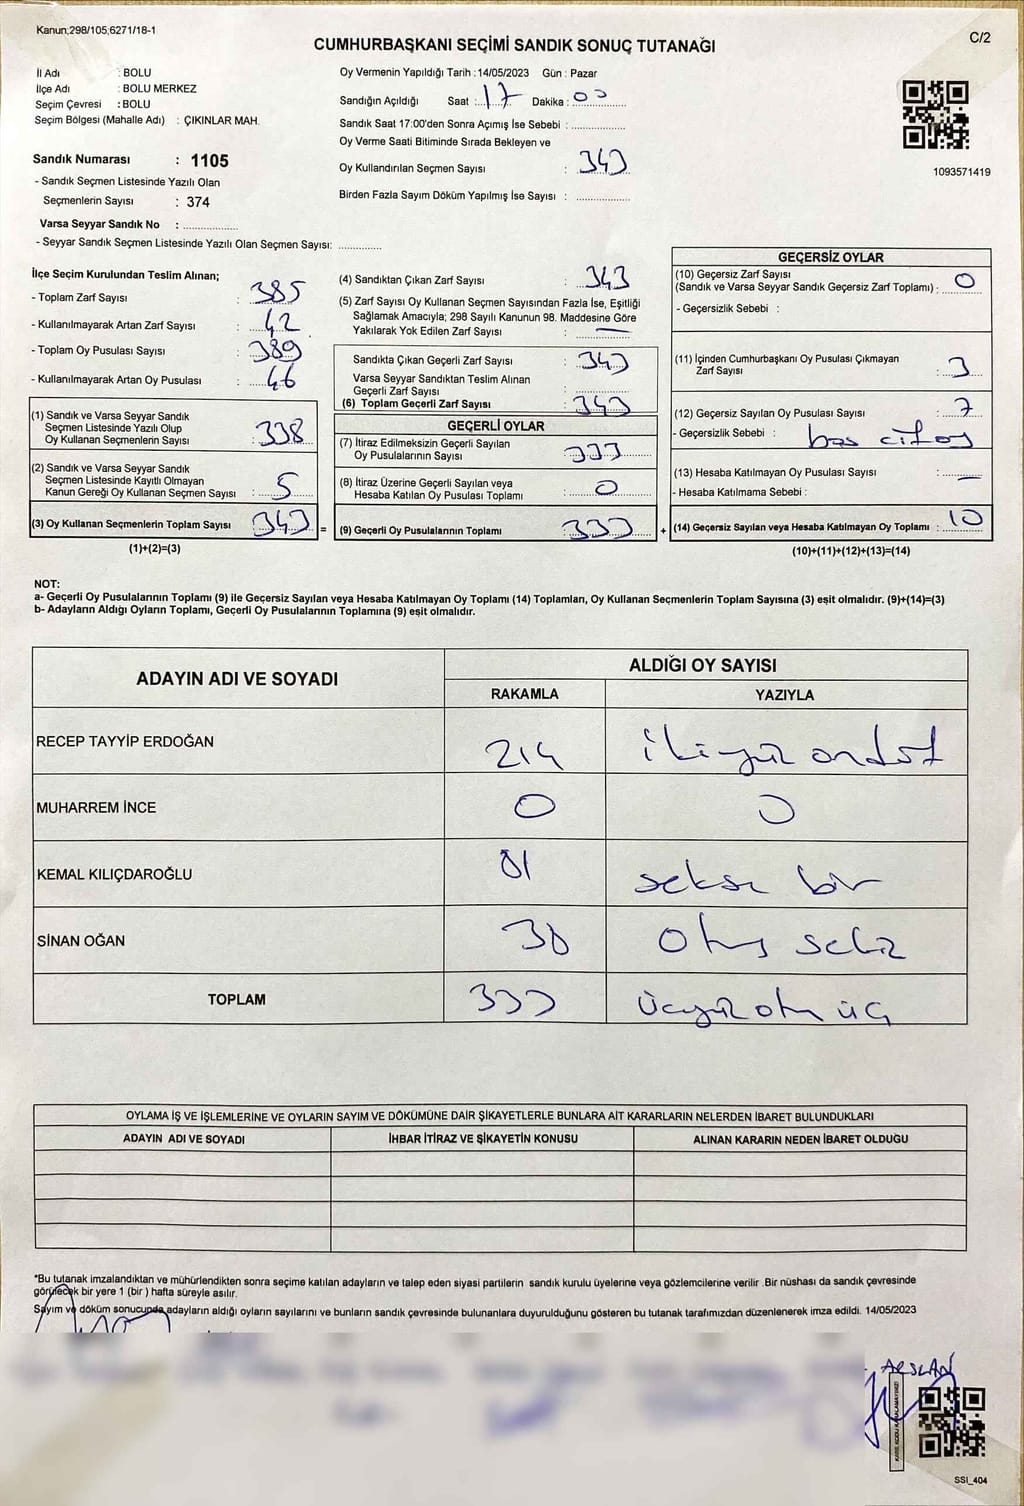 Kanun;298/105;6271/18-1
C/2
CUMHURBAŞKANI SEÇİMİ SANDIK SONUÇ TUTANAĞI
İl Adı : BOLU
İlçe Adı : BOLU MERKEZ
Seçim Çevresi : BOLU
Seçim Bölgesi (Mahalle Adı) : ÇIKINLAR MAH.
Sandık Numarası : 1105
- Sandık Seçmen Listesinde Yazılı Olan
Seçmenlerin Sayısı : 374
Varsa Seyyar Sandık No : ..................
- Seyyar Sandık Seçmen Listesinde Yazılı Olan Seçmen Sayısı: ..............
Oy Vermenin Yapıldığı Tarih :14/05/2023 Gün : Pazar
Sandığın Açıldığı Saat : 17 Dakika : 00
Sandık Saat 17:00'den Sonra Açımış İse Sebebi : ..................
Oy Verme Saati Bitiminde Sırada Bekleyen ve
Oy Kullandırılan Seçmen Sayısı : 343
Birden Fazla Sayım Döküm Yapılmış İse Sayısı : ..................
1093571419
İlçe Seçim Kurulundan Teslim Alınan;
- Toplam Zarf Sayısı : 385
- Kullanılmayarak Artan Zarf Sayısı : 42
- Toplam Oy Pusulası Sayısı : 389
- Kullanılmayarak Artan Oy Pusulası : 46
(1) Sandık ve Varsa Seyyar Sandık
Seçmen Listesinde Yazılı Olup
Oy Kullanan Seçmenlerin Sayısı : 338
(2) Sandık ve Varsa Seyyar Sandık
Seçmen Listesinde Kayıtlı Olmayan
Kanun Gereği Oy Kullanan Seçmen Sayısı : 5
(3) Oy Kullanan Seçmenlerin Toplam Sayısı 343 =
(1)+(2)=(3)
(4) Sandıktan Çıkan Zarf Sayısı : 343
(5) Zarf Sayısı Oy Kullanan Seçmen Sayısından Fazla İse, Eşitliği
Sağlamak Amacıyla; 298 Sayılı Kanunun 98. Maddesine Göre
Yakılarak Yok Edilen Zarf Sayısı : —
Sandıkta Çıkan Geçerli Zarf Sayısı : 343
Varsa Seyyar Sandıktan Teslim Alınan
Geçerli Zarf Sayısı : ..................
(6) Toplam Geçerli Zarf Sayısı : 343
GEÇERLİ OYLAR
(7) İtiraz Edilmeksizin Geçerli Sayılan
Oy Pusulalarının Sayısı : 333
(8) İtiraz Üzerine Geçerli Sayılan veya
Hesaba Katılan Oy Pusulası Toplamı : 0
(9) Geçerli Oy Pusulalarının Toplamı : 333 +
GEÇERSİZ OYLAR
(10) Geçersiz Zarf Sayısı
(Sandık ve Varsa Seyyar Sandık Geçersiz Zarf Toplamı) : 0
- Geçersizlik Sebebi :
(11) İçinden Cumhurbaşkanı Oy Pusulası Çıkmayan
Zarf Sayısı : 3
(12) Geçersiz Sayılan Oy Pusulası Sayısı : 7
- Geçersizlik Sebebi :
(13) Hesaba Katılmayan Oy Pusulası Sayısı : —
- Hesaba Katılmama Sebebi :
(14) Geçersiz Sayılan veya Hesaba Katılmayan Oy Toplamı : 10
(10)+(11)+(12)+(13)=(14)
NOT:
a- Geçerli Oy Pusulalarının Toplamı (9) ile Geçersiz Sayılan veya Hesaba Katılmayan Oy Toplamı (14) Toplamları, Oy Kullanan Seçmenlerin Toplam Sayısına (3) eşit olmalıdır. (9)+(14)=(3)
b- Adayların Aldığı Oyların Toplamı, Geçerli Oy Pusulalarının Toplamına (9) eşit olmalıdır.
ADAYIN ADI VE SOYADI
ALDIĞI OY SAYISI
RAKAMLA YAZIYLA
RECEP TAYYİP ERDOĞAN 214 ikiyüz ondört
MUHARREM İNCE 0 0
KEMAL KILIÇDAROĞLU 81 seksen bir
SİNAN OĞAN 38 otuz sekiz
TOPLAM 333 üçyüz otuz üç
OYLAMA İŞ VE İŞLEMLERİNE VE OYLARIN SAYIM VE DÖKÜMÜNE DAİR ŞİKAYETLERLE BUNLARA AİT KARARLARIN NELERDEN İBARET BULUNDUKLARI
ADAYIN ADI VE SOYADI İHBAR İTİRAZ VE ŞİKAYETİN KONUSU ALINAN KARARIN NEDEN İBARET OLDUĞU
*Bu tutanak imzalandıktan ve mühürlendikten sonra seçime katılan adayların ve talep eden siyasi partilerin sandık kurulu üyelerine veya gözlemcilerine verilir .Bir nüshası da sandık çevresinde
görülecek bir yere 1 (bir ) hafta süreyle asılır.
Sayım ve döküm sonucunda adayların aldığı oyların sayılarını ve bunların sandık çevresinde bulunanlara duyurulduğunu gösteren bu tutanak tarafımızdan düzenlenerek imza edildi. 14/05/2023
ARSLAN
KARE KODU KARALAMAYINIZ!
SSI_404